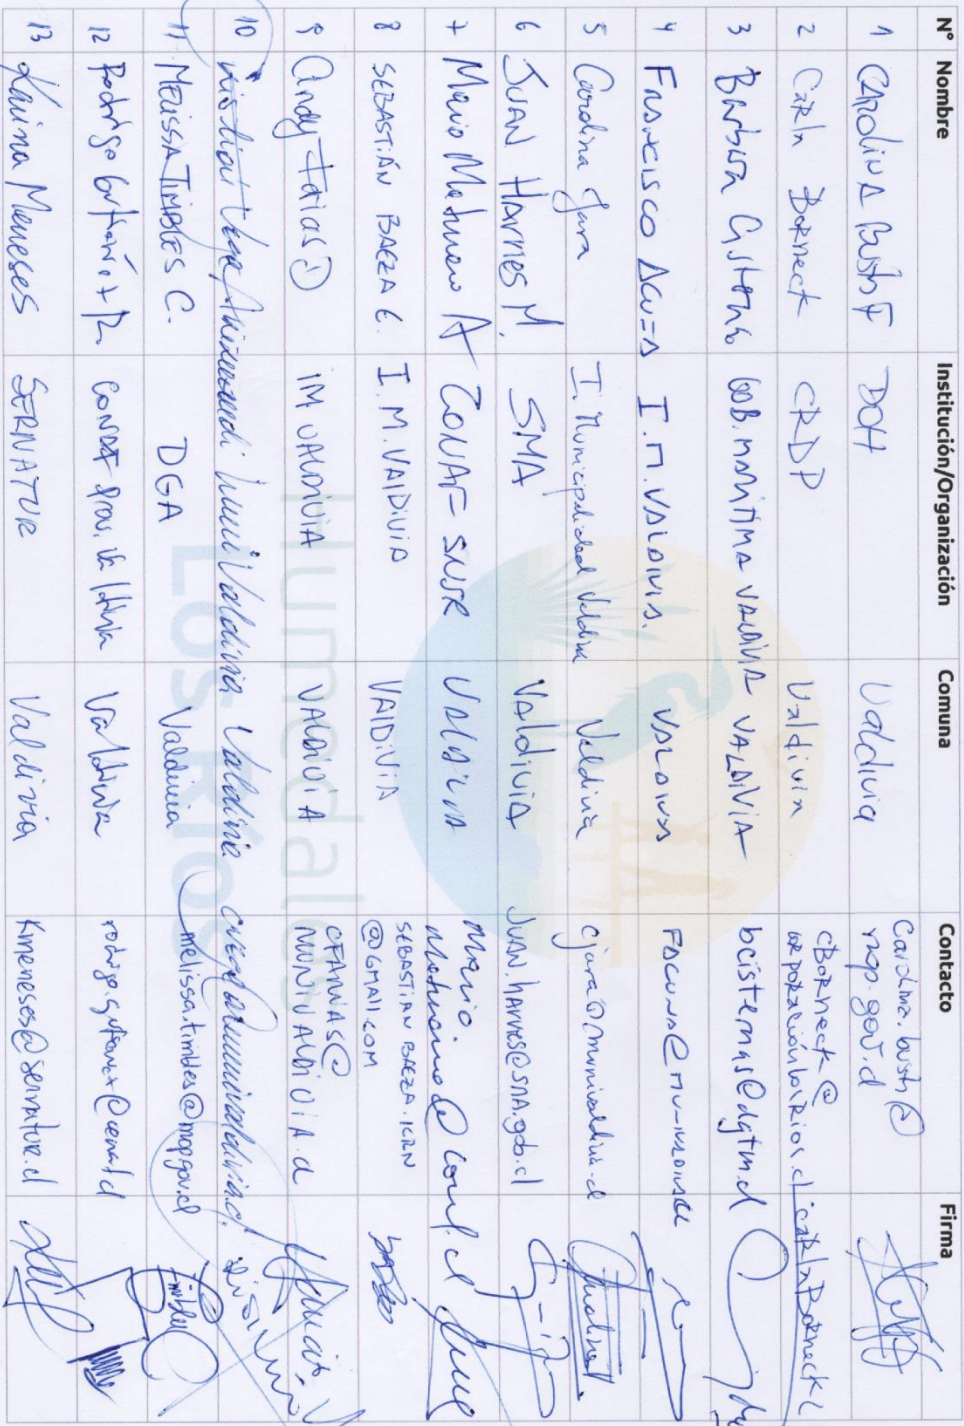 N° Nombre Institución/Organización Comuna Contacto Firma
1 CAROLINA Busts F DOH Valdivia Carolina.busts@
mop.gov.cl
2 Carla Borneck CRDP Valdivia cBorneck@
corporaciónlosRios.cl CarlaBorneckC
3 Barbara Cisternas GOB. MARÍTIMA VALDIVIA VALDIVIA bcisternas@dgtm.cl
4 FRANCISCO Acuña I.M. VALDIVIA. VALDIVIA
5 Carolina Jara I. Municipalidad Valdivia Valdivia cjara@munivaldivia.cl
6 JUAN HARNES M. SMA VALdiviA JUAN.harnes@SMA.gob.cl
7 Mario Maturana A CONAF-SNSR VALDIVIA Mario.
Maturana@conaf.cl
8 SEBASTIÁN BAEZA C. I.M. VALDIVIA VALDIVIA SEBASTIAN BAEZA.ICRN
@GMAIL.COM
9 Andy Farias D IM VALDIVIA VALDIVIA CFARIAS@
MUNIVALDIVIA.cl
10 Vega Valdivia Valdivia
11 MELISSA TIMBLES C. DGA Valdivia melissa.timbles@mop.gov.cl
12 Rodrigo R. CONAF Prov. Valdivia Valdivia
13 Karina Meneses SERNATUR Valdivia kmeneses@sernatur.cl
Humedales
Los Ríos